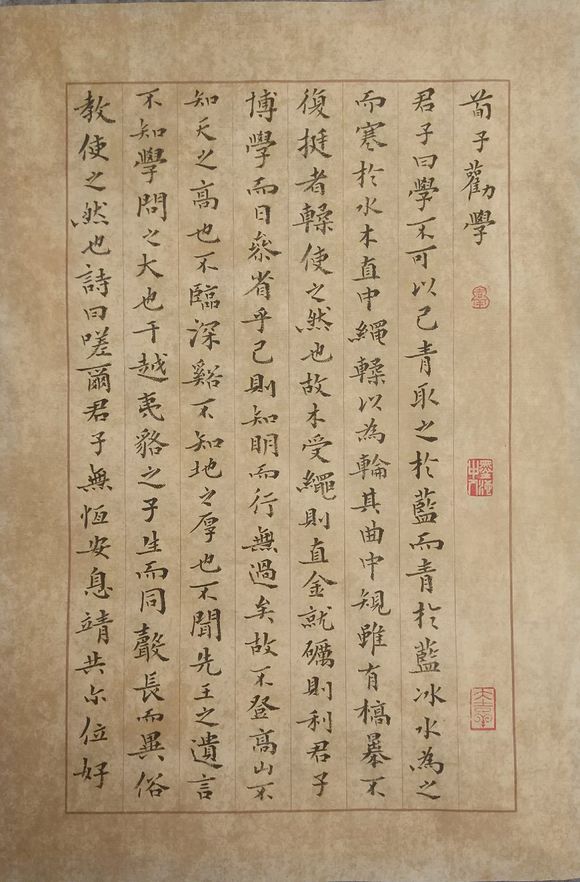 荀子勸學
君子曰學不可以已青取之於藍而青於藍冰水為之
而寒於水木直中繩輮以為輪其曲中規雖有槁暴不
復挺者輮使之然也故木受繩則直金就礪則利君子
博學而日叅省乎己則知明而行無過矣故不登高山不
知天之高也不臨深谿不知地之厚也不聞先王之遺言
不知學問之大也干越夷貉之子生而同聲長而異俗
教使之然也詩曰嗟爾君子無恆安息靖共尔位好